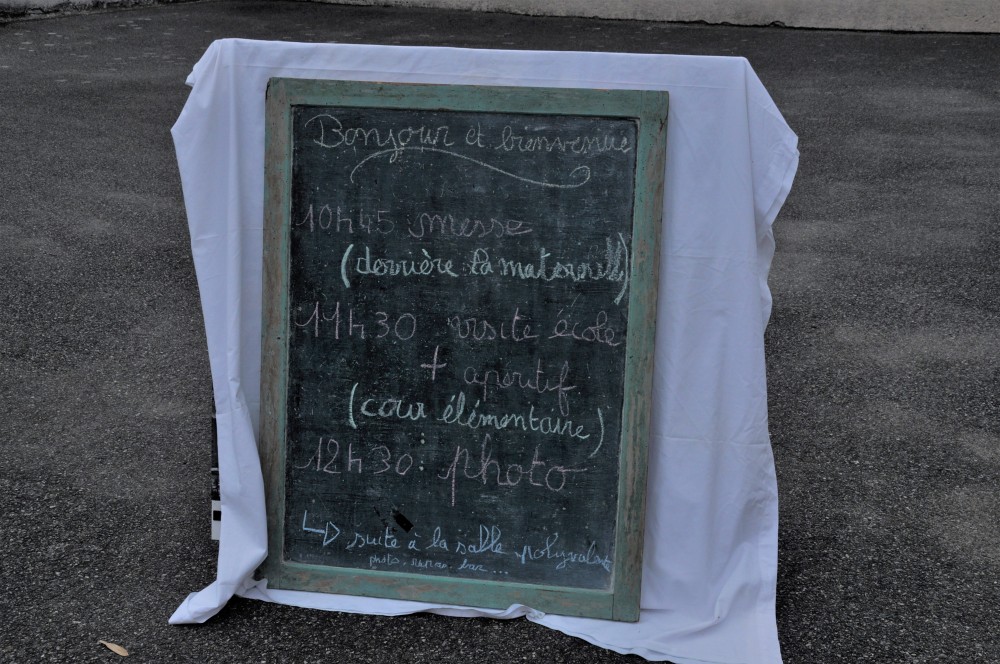 Bonjour et bienvenue
10h45 messe
(derrière la maternelle)
11h30 visite école
+ aperitif
(cour élémentaire)
12h30: photo
↳ suite à la salle polyvalente
photo. repas. bar...